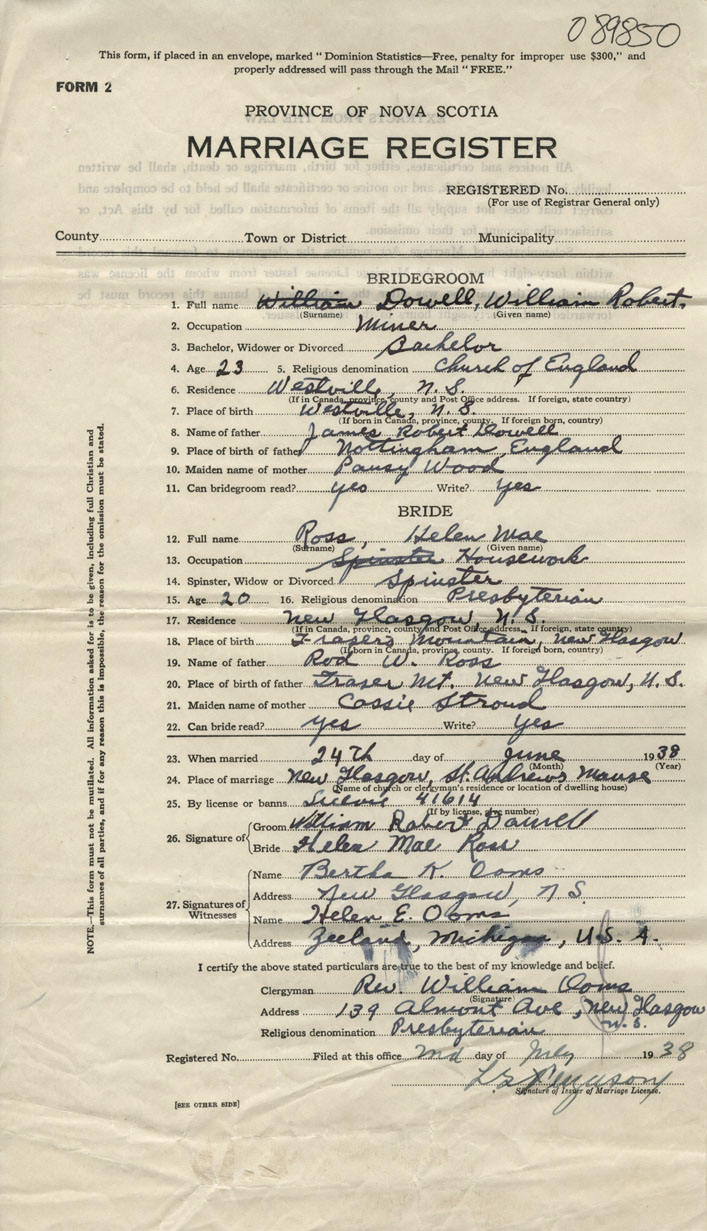 089850
This form, if placed in an envelope, marked "Dominion Statistics—Free, penalty for improper use $300," and
properly addressed will pass through the Mail "FREE."
FORM 2
PROVINCE OF NOVA SCOTIA
MARRIAGE REGISTER
REGISTERED No.
(For use of Registrar General only)
County Town or District Municipality
BRIDEGROOM
1. Full name William Dowell, William Robert.
(Surname) (Given name)
2. Occupation Miner
3. Bachelor, Widower or Divorced Bachelor
4. Age 23 5. Religious denomination Church of England
6. Residence Westville, N.S.
(If in Canada, province, county and Post Office address. If foreign, state country)
7. Place of birth Westville, N.S.
(If born in Canada, province, county. If foreign born, country)
8. Name of father James Robert Dowell
9. Place of birth of father Nottingham, England
10. Maiden name of mother Pansy Wood
11. Can bridegroom read? yes Write? yes
BRIDE
12. Full name Ross, Helen Mae
(Surname) (Given name)
13. Occupation Spinster Housework
14. Spinster, Widow or Divorced Spinster
15. Age 20 16. Religious denomination Presbyterian
17. Residence New Glasgow, N.S.
(If in Canada, province, county and Post Office address. If foreign, state country)
18. Place of birth Frasers Mountain, New Glasgow
(If born in Canada, province, county. If foreign born, country)
19. Name of father Rod W. Ross
20. Place of birth of father Fraser Mt. New Glasgow, N.S.
21. Maiden name of mother Cassie Stroud
22. Can bride read? yes Write? yes
23. When married 24th day of June 1938
(Month) (Year)
24. Place of marriage New Glasgow, St. Andrews Manse
(Name of church or clergyman's residence or location of dwelling house)
25. By license or banns 41614
(If by license, give number)
26. Signature of Groom William Robert Dowell
Bride Helen Mae Ross
27. Signatures of Witnesses Name Bertha K. Ooms
Address New Glasgow, N.S.
Name Helen E. Ooms
Address Zeeland, Michigan, U.S.A.
I certify the above stated particulars are true to the best of my knowledge and belief.
Clergyman Rev. William Ooms
(Signature)
Address 139 Almont Ave, New Glasgow
N.S.
Religious denomination Presbyterian
Registered No. Filed at this office 2nd day of July 1938
Signature of Issuer of Marriage License.
[SEE OTHER SIDE]
NOTE.—This form must not be mutilated. All information asked for is to be given, including full Christian and
surnames of all parties, and if for any reason this is impossible, the reason for the omission must be stated.